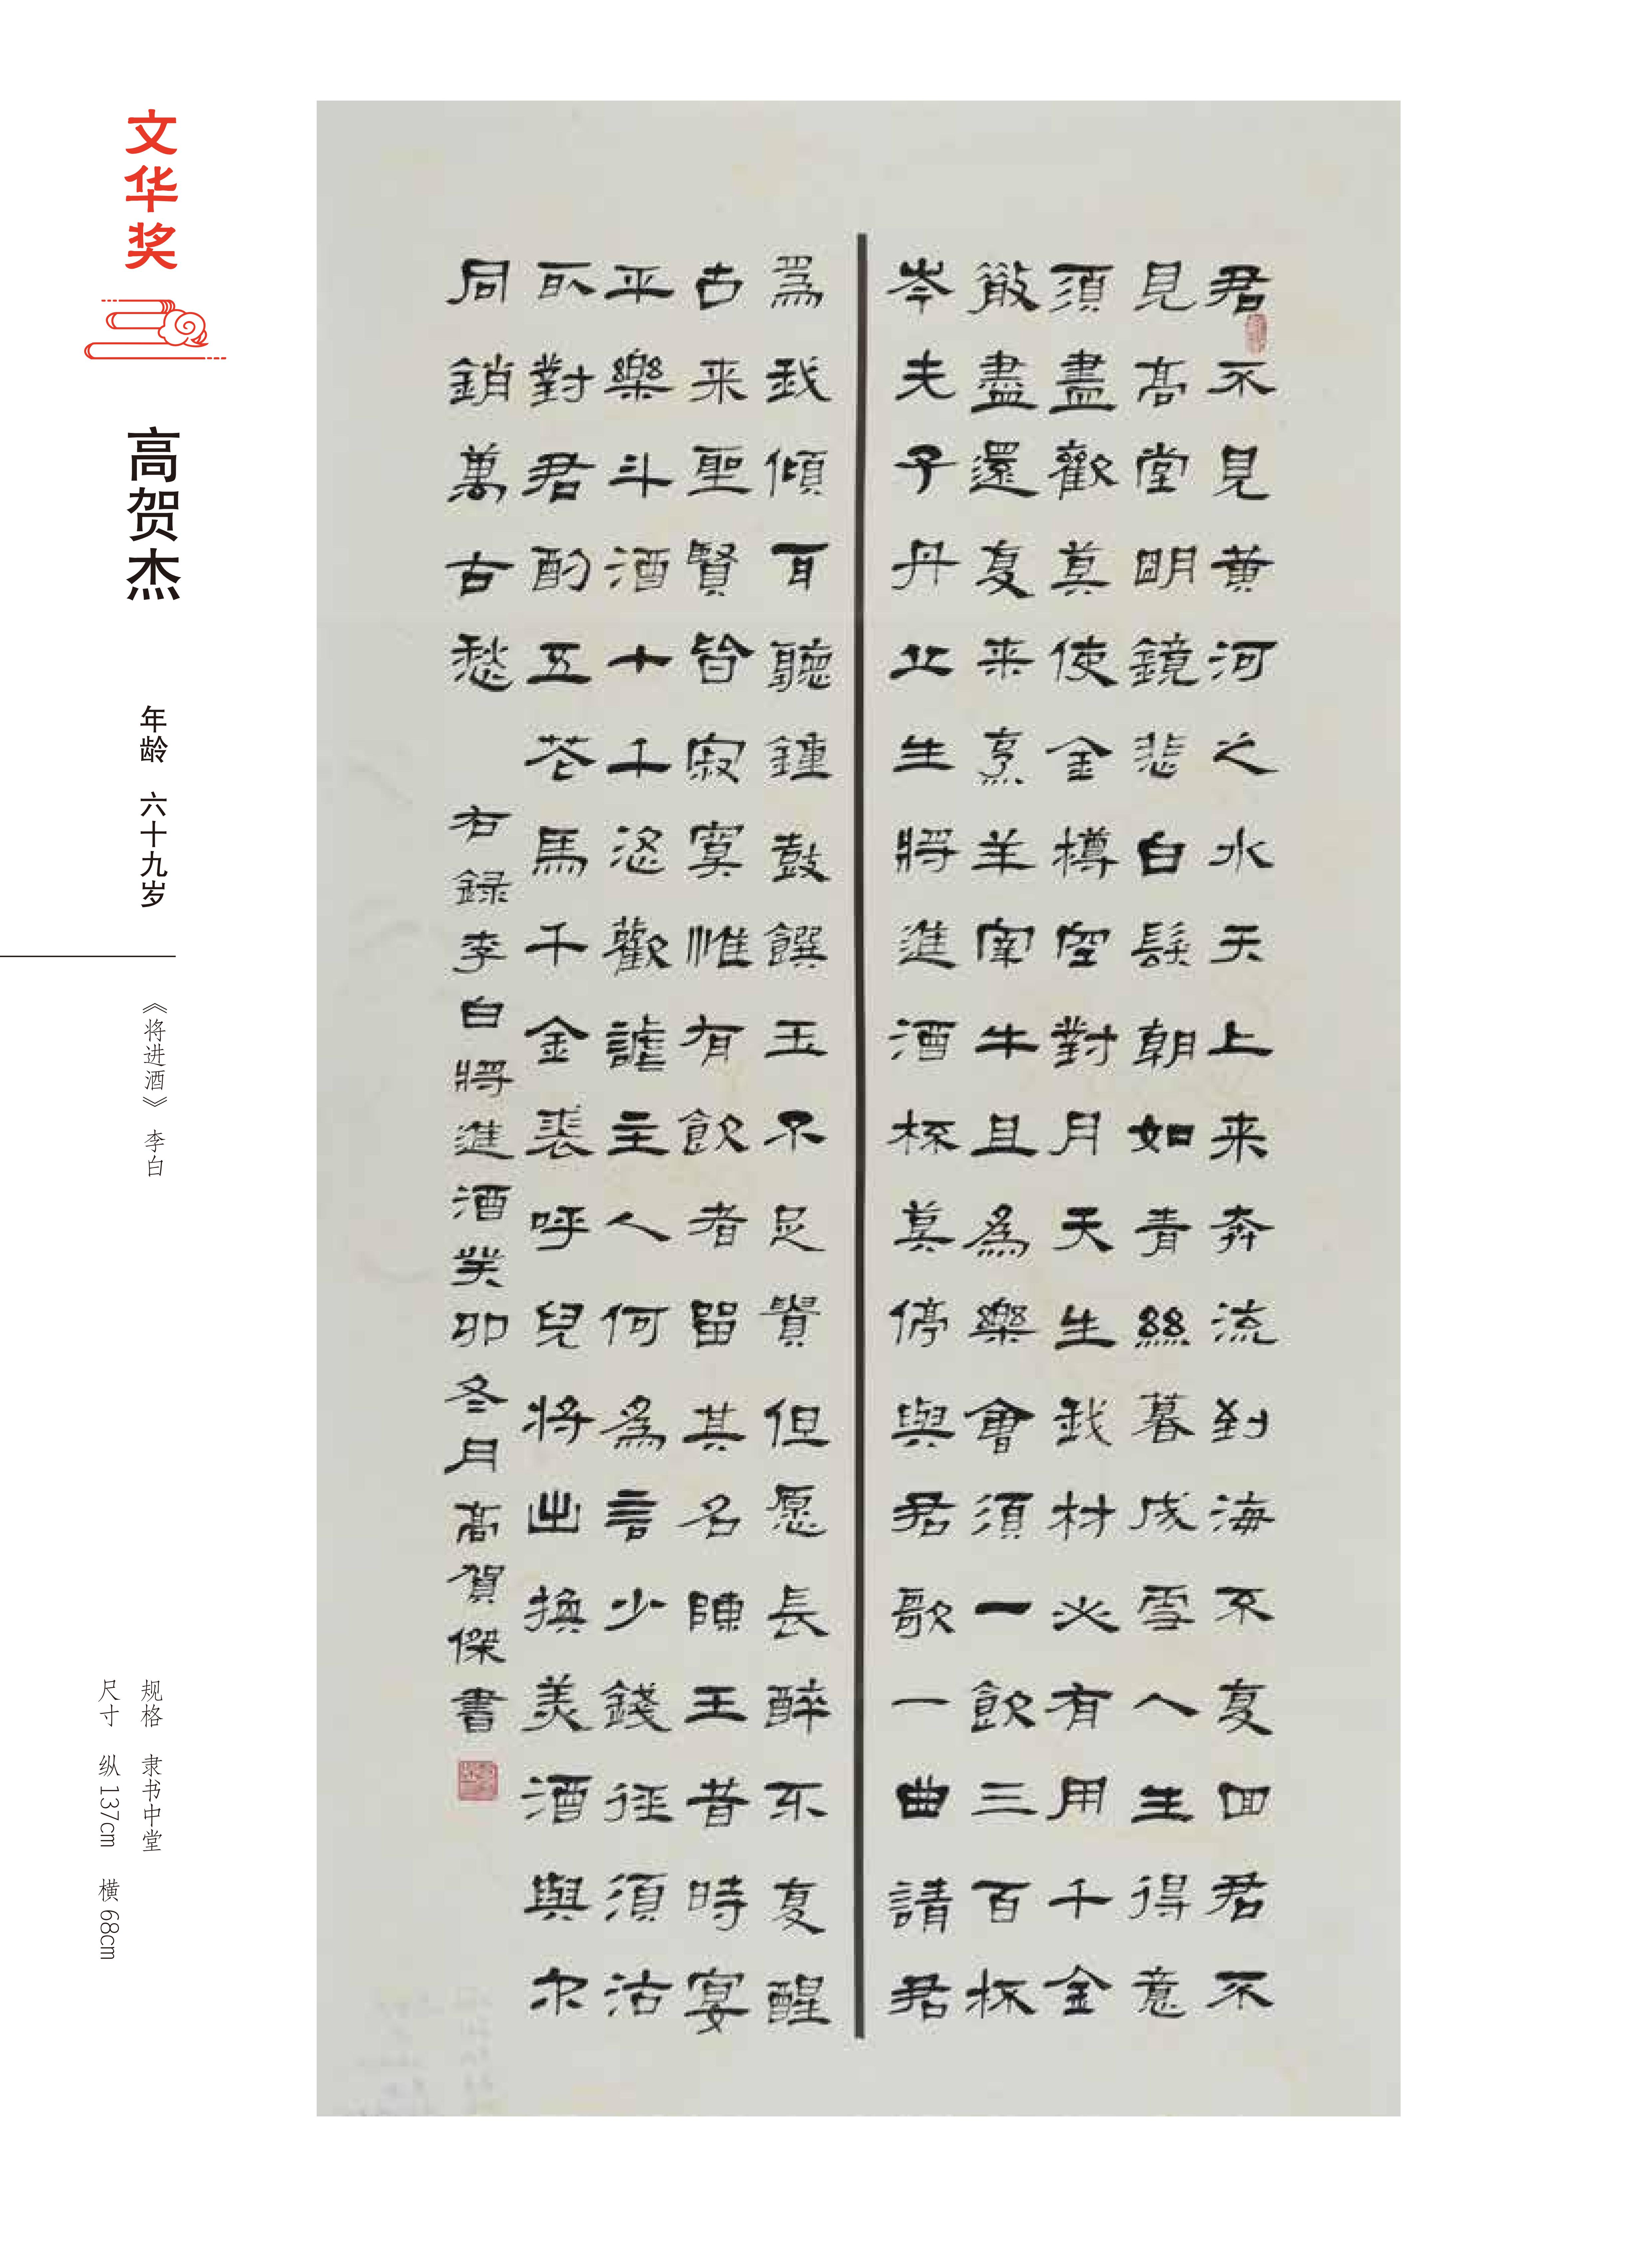 君不見黄河之水天上来奔流到海不复回君不
見高堂明鏡悲白髮朝如青絲暮成雪人生得意
須盡歡莫使金樽空對月天生我材必有用千金
散盡還复来烹羊宰牛且為樂會須一飲三百杯
岑夫子丹丘生將進酒杯莫停與君歌一曲請君
為我傾耳聽鍾鼓饌玉不足貴但愿長醉不复醒
古来聖賢皆寂寞惟有飲者留其名陳王昔時宴
平樂斗酒十千恣歡謔主人何為言少錢徑須沽
取對君酌五花馬千金裘呼兒将出換美酒與尔
同銷萬古愁 右録李白將進酒癸卯冬月高賀傑書
文华奖
高贺杰
年龄 六十九岁
《将进酒》 李白
规格 隶书中堂
尺寸 纵137cm 横68cm